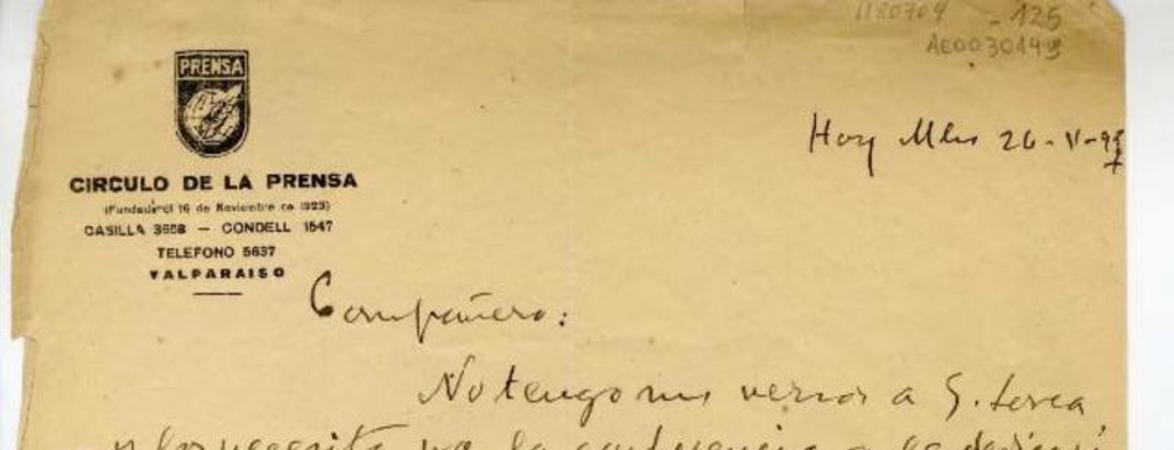 1180704 - 125
AE0030149
PRENSA
Hoy 26-V-
CIRCULO DE LA PRENSA
(Fundado el 16 de Noviembre de 1923)
CASILLA 3658 — CONDELL 1547
TELEFONO 5637
VALPARAISO
Compañero:
No tengo mis versos a G. Lorca
y los necesito la conferencia